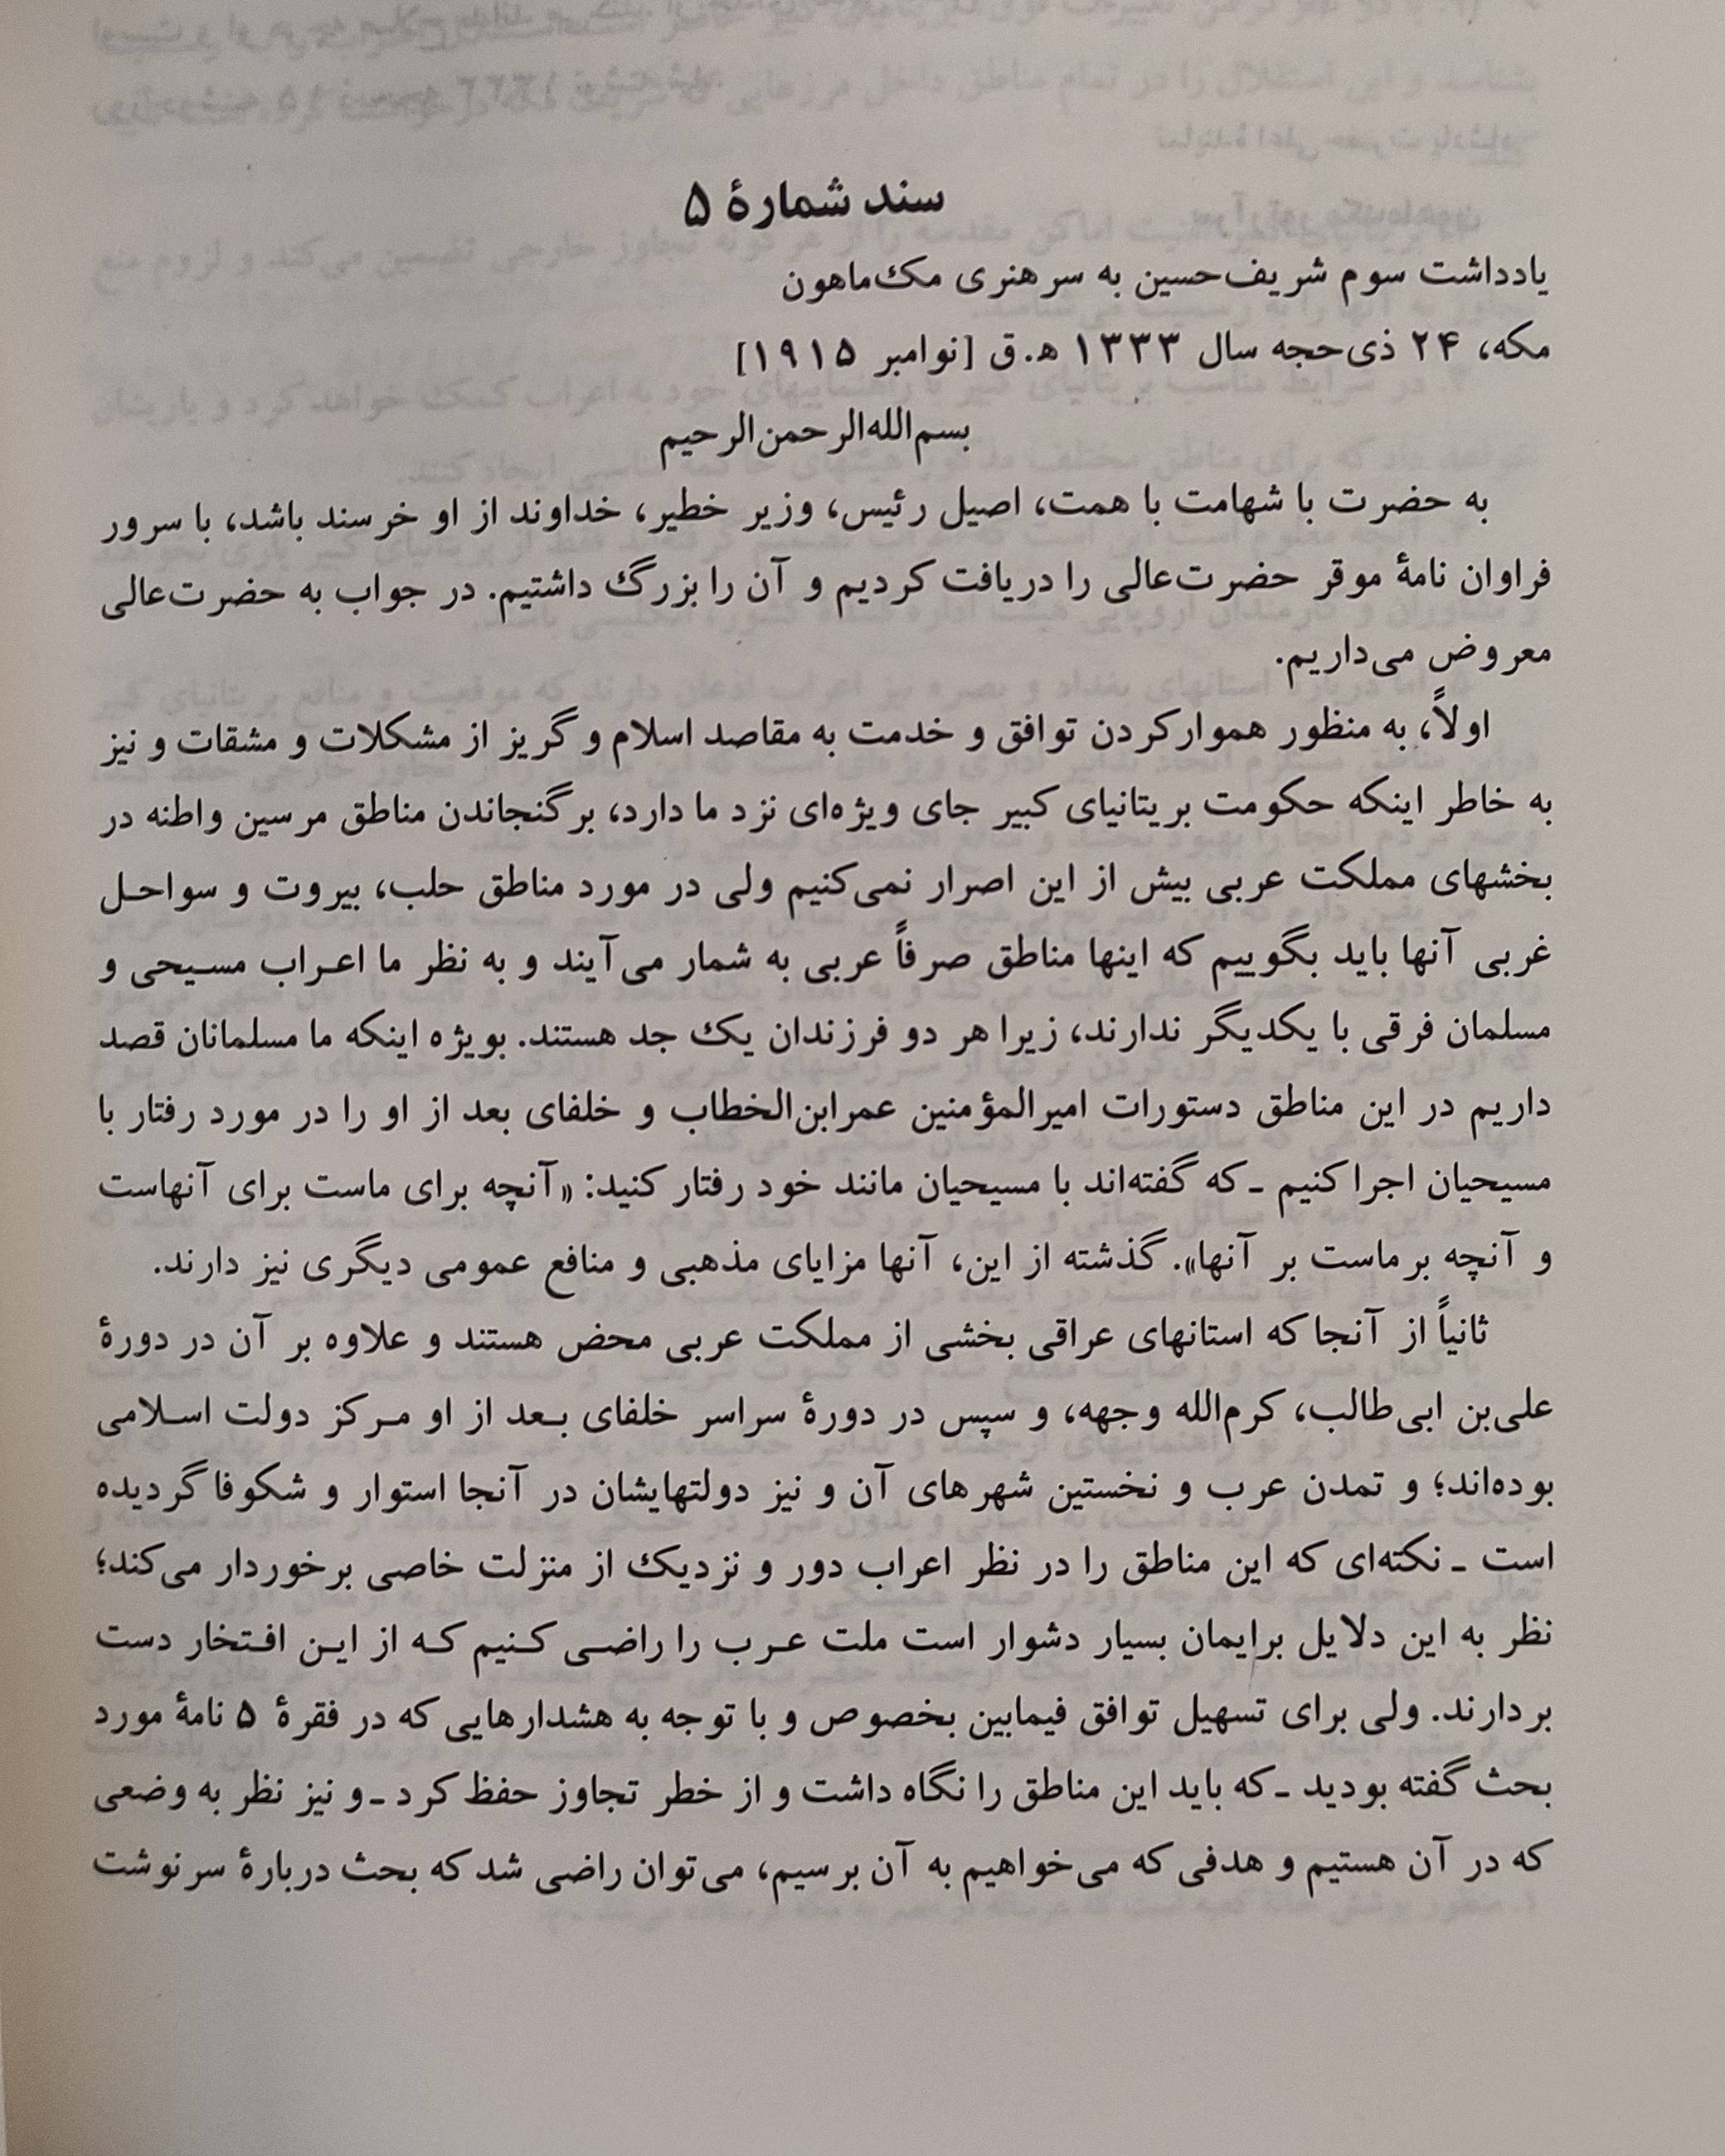 سند شمارهٔ ۵
یادداشت سوم شریف‌حسین به سر هنری مک‌ماهون
مکه، ۲۴ ذی‌حجه سال ۱۳۳۳ ه‍.ق [نوامبر ۱۹۱۵]
بسم‌الله‌الرحمن‌الرحیم
به حضرت با شهامت با همت، اصیل رئیس، وزیر خطیر، خداوند از او خرسند باشد، با سرور
فراوان نامهٔ موقر حضرت‌عالی را دریافت کردیم و آن را بزرگ داشتیم. در جواب به حضرت‌عالی
معروض می‌داریم.
اولاً، به منظور هموارکردن توافق و خدمت به مقاصد اسلام و گریز از مشکلات و مشقات و نیز
به خاطر اینکه حکومت بریتانیای کبیر جای ویژه‌ای نزد ما دارد، بر گنجاندن مناطق مرسین واطنه در
بخشهای مملکت عربی بیش از این اصرار نمی‌کنیم ولی در مورد مناطق حلب، بیروت و سواحل
غربی آنها باید بگوییم که اینها مناطق صرفاً عربی به شمار می‌آیند و به نظر ما اعراب مسیحی و
مسلمان فرقی با یکدیگر ندارند، زیرا هر دو فرزندان یک جد هستند. بویژه اینکه ما مسلمانان قصد
داریم در این مناطق دستورات امیرالمؤمنین عمرابن‌الخطاب و خلفای بعد از او را در مورد رفتار با
مسیحیان اجرا کنیم ـ که گفته‌اند با مسیحیان مانند خود رفتار کنید: «آنچه برای ماست برای آنهاست
و آنچه بر ماست بر آنها». گذشته از این، آنها مزایای مذهبی و منافع عمومی دیگری نیز دارند.
ثانیاً از آنجا که استانهای عراقی بخشی از مملکت عربی محض هستند و علاوه بر آن در دورهٔ
علی‌بن ابی‌طالب، کرم‌الله وجهه، و سپس در دورهٔ سراسر خلفای بعد از او مرکز دولت اسلامی
بوده‌اند؛ و تمدن عرب و نخستین شهرهای آن و نیز دولتهایشان در آنجا استوار و شکوفا گردیده
است ـ نکته‌ای که این مناطق را در نظر اعراب دور و نزدیک از منزلت خاصی برخوردار می‌کند؛
نظر به این دلایل برایمان بسیار دشوار است ملت عرب را راضی کنیم که از این افتخار دست
بردارند. ولی برای تسهیل توافق فیمابین بخصوص و با توجه به هشدارهایی که در فقرهٔ ۵ نامهٔ مورد
بحث گفته بودید ـ که باید این مناطق را نگاه داشت و از خطر تجاوز حفظ کرد ـ و نیز نظر به وضعی
که در آن هستیم و هدفی که می‌خواهیم به آن برسیم، می‌توان راضی شد که بحث دربارهٔ سرنوشت